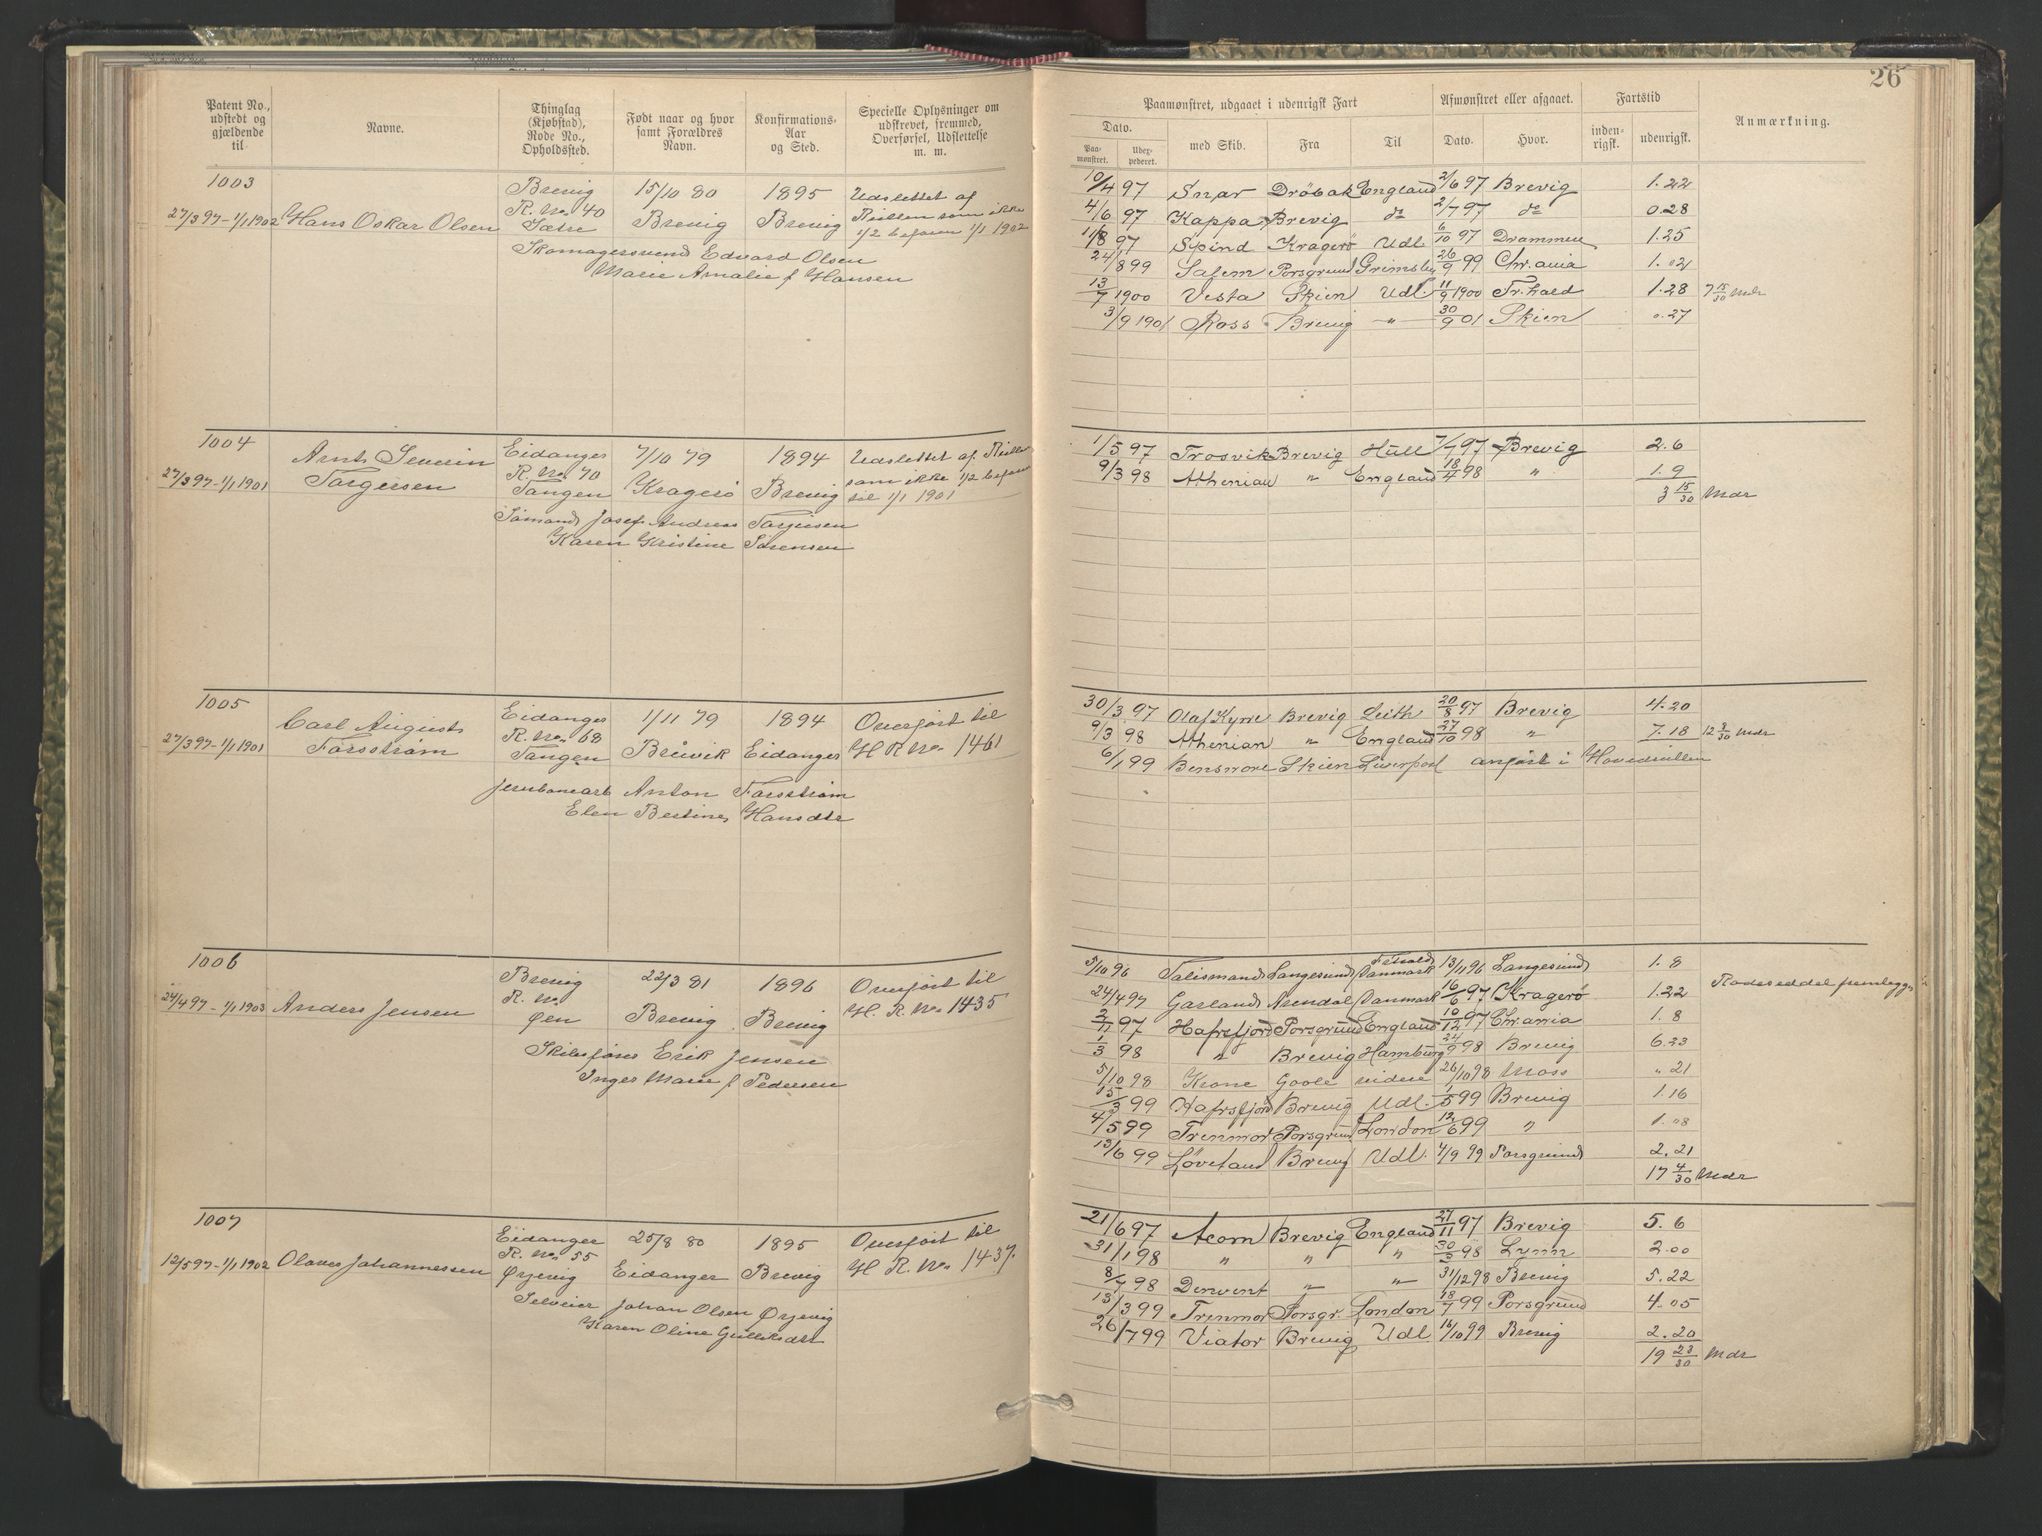 26
Patent No., udstedt og gjældende til
Navne.
Thinglag (Kjøbstad), Rode No., Opholdssted.
Født naar og hvor samt Forældres Navn.
Konfirmations-Aar og Sted.
Specielle Oplysninger om udskrevet, fremmed, Overførsel, Udslettelse m. m.
Paamønstret, udgaaet i udenrigsk Fart
Afmønstret eller afgaaet.
Fartstid
Anmærkning.
Dato.
Paa-mønstret.
Udex-pederet.
med Skib.
Fra
Til
Dato.
Hvor.
inden-rigsk.
udenrigsk.
1003
27/3 97 - 1/1 1902 Hans Oskar Olsen
Brevig
R. No. 40
Sætre
15/10 80
Brevig
1895
Brevig
Udslettet af
Rullen som ikke
1/2 befaren 1/1 1902
Skomagersvend Edvard Olsen
Marie Amalie f Hansen
10/4 97 Snar Dröbak England 2/6 97 Brevig 1.22
4/6 97 Kappa Brevig do 2/7 97 do 0.28
11/8 97 Spind Kragerö Udl. 6/10 97 Drammen 1.25
24/8 99 Salem Porsgrund Grimsby 26/9 99 Chr.ania 1.02
13/7 1900 Vesta Skien Udl. 11/9 1900 Fr.hald 1.28 7 15/30 Mdr
3/9 1901 Ross Brevig " 30/9 01 Skien 0.27
1004
27/3 97 - 1/1 1901
Arnt Severin
Torgersen
Eidanger
R. No. 70
Tangen
7/10 79
Kragerö
1894
Brevig
Udslettet af Rullen
som ikke 1/2 befaren
til 1/1 1901
Sömand Josef Andreas Torgersen
Karen Kristine Sörensen
1/5 97 Trosvik Brevig Hull 7/7 97 Brevig 2.6
9/3 98 Athenian " England 18/4 98 " 1.9
3 15/30 Mdr
1005
27/3 97 - 1/1 1901
Carl August
Forsström
Eidanger
R. No. 68
Tangen
1/11 79
Breivik
1894
Eidanger
Overført til
H. R. No. 1461
Jernbanearb Anton Forsström
Elen Bertine Hansdtr
30/3 97 Olaf Kyrre Brevig Leith 20/8 97 Brevig 4.20
9/3 98 Athenian " England 27/10 98 " 7.18 12 8/30 Mdr
6/1 99 Benswore Skien Liverpool anført i Hovedrullen
1006
24/4 97 - 1/1 1903 Anders Jensen
Brevig
R. No.
Øen
22/3 81
Brevig
1896
Brevig
Overført til
H. R. No. 1435
Skibsfører Erik Jensen
Inger Marie f Pedersen
5/10 96 Talismand Langesund Danmark 13/11 96 Langesund 1.8
24/4 97 Garland Arendal Danmark 16/6 97 Kragerö 1.22 Rodeseddel fremlægges
2/11 97 Hafrsfjord Porsgrund England 10/12 97 Chr.ania 1.8
1/3 98 " Brevig Hamburg 24/9 98 Brevig 6.23
5/10 98 Krone Goole videre 26/10 98 Moss " 21
15/3 99 Hafrsfjord Brevig Udl. 1/5 99 Brevig 1.16
4/5 99 Trenmor Porsgrund London 12/6 99 " 1.08
13/6 99 Løveland Brevig Udl. 4/9 99 Porsgrund 2.21
17 4/30 Mdr
1007
12/5 97 - 1/1 1902 Olaves Johannessen
Eidanger
R. No. 55
Ørjevig
25/8 80
Eidanger
1895
Brevig
Overført til
H. R. No. 1437.
Selveier Johan Olsen Ørjevig
Karen Oline Gulliksdtr
21/6 97 Acorn Brevig England 27/11 97 Brevig 5.6
31/1 98 " " " 30/3 98 Lynn 2.00
8/7 98 Derwent " " 31/12 98 Brevig 5.22
13/3 99 Trenmor Porsgr. London 18/7 99 Porsgrund 4.05
26/7 99 Viator Brevig Udl 16/10 99 Brevig 2.20
19 23/30 Mdr